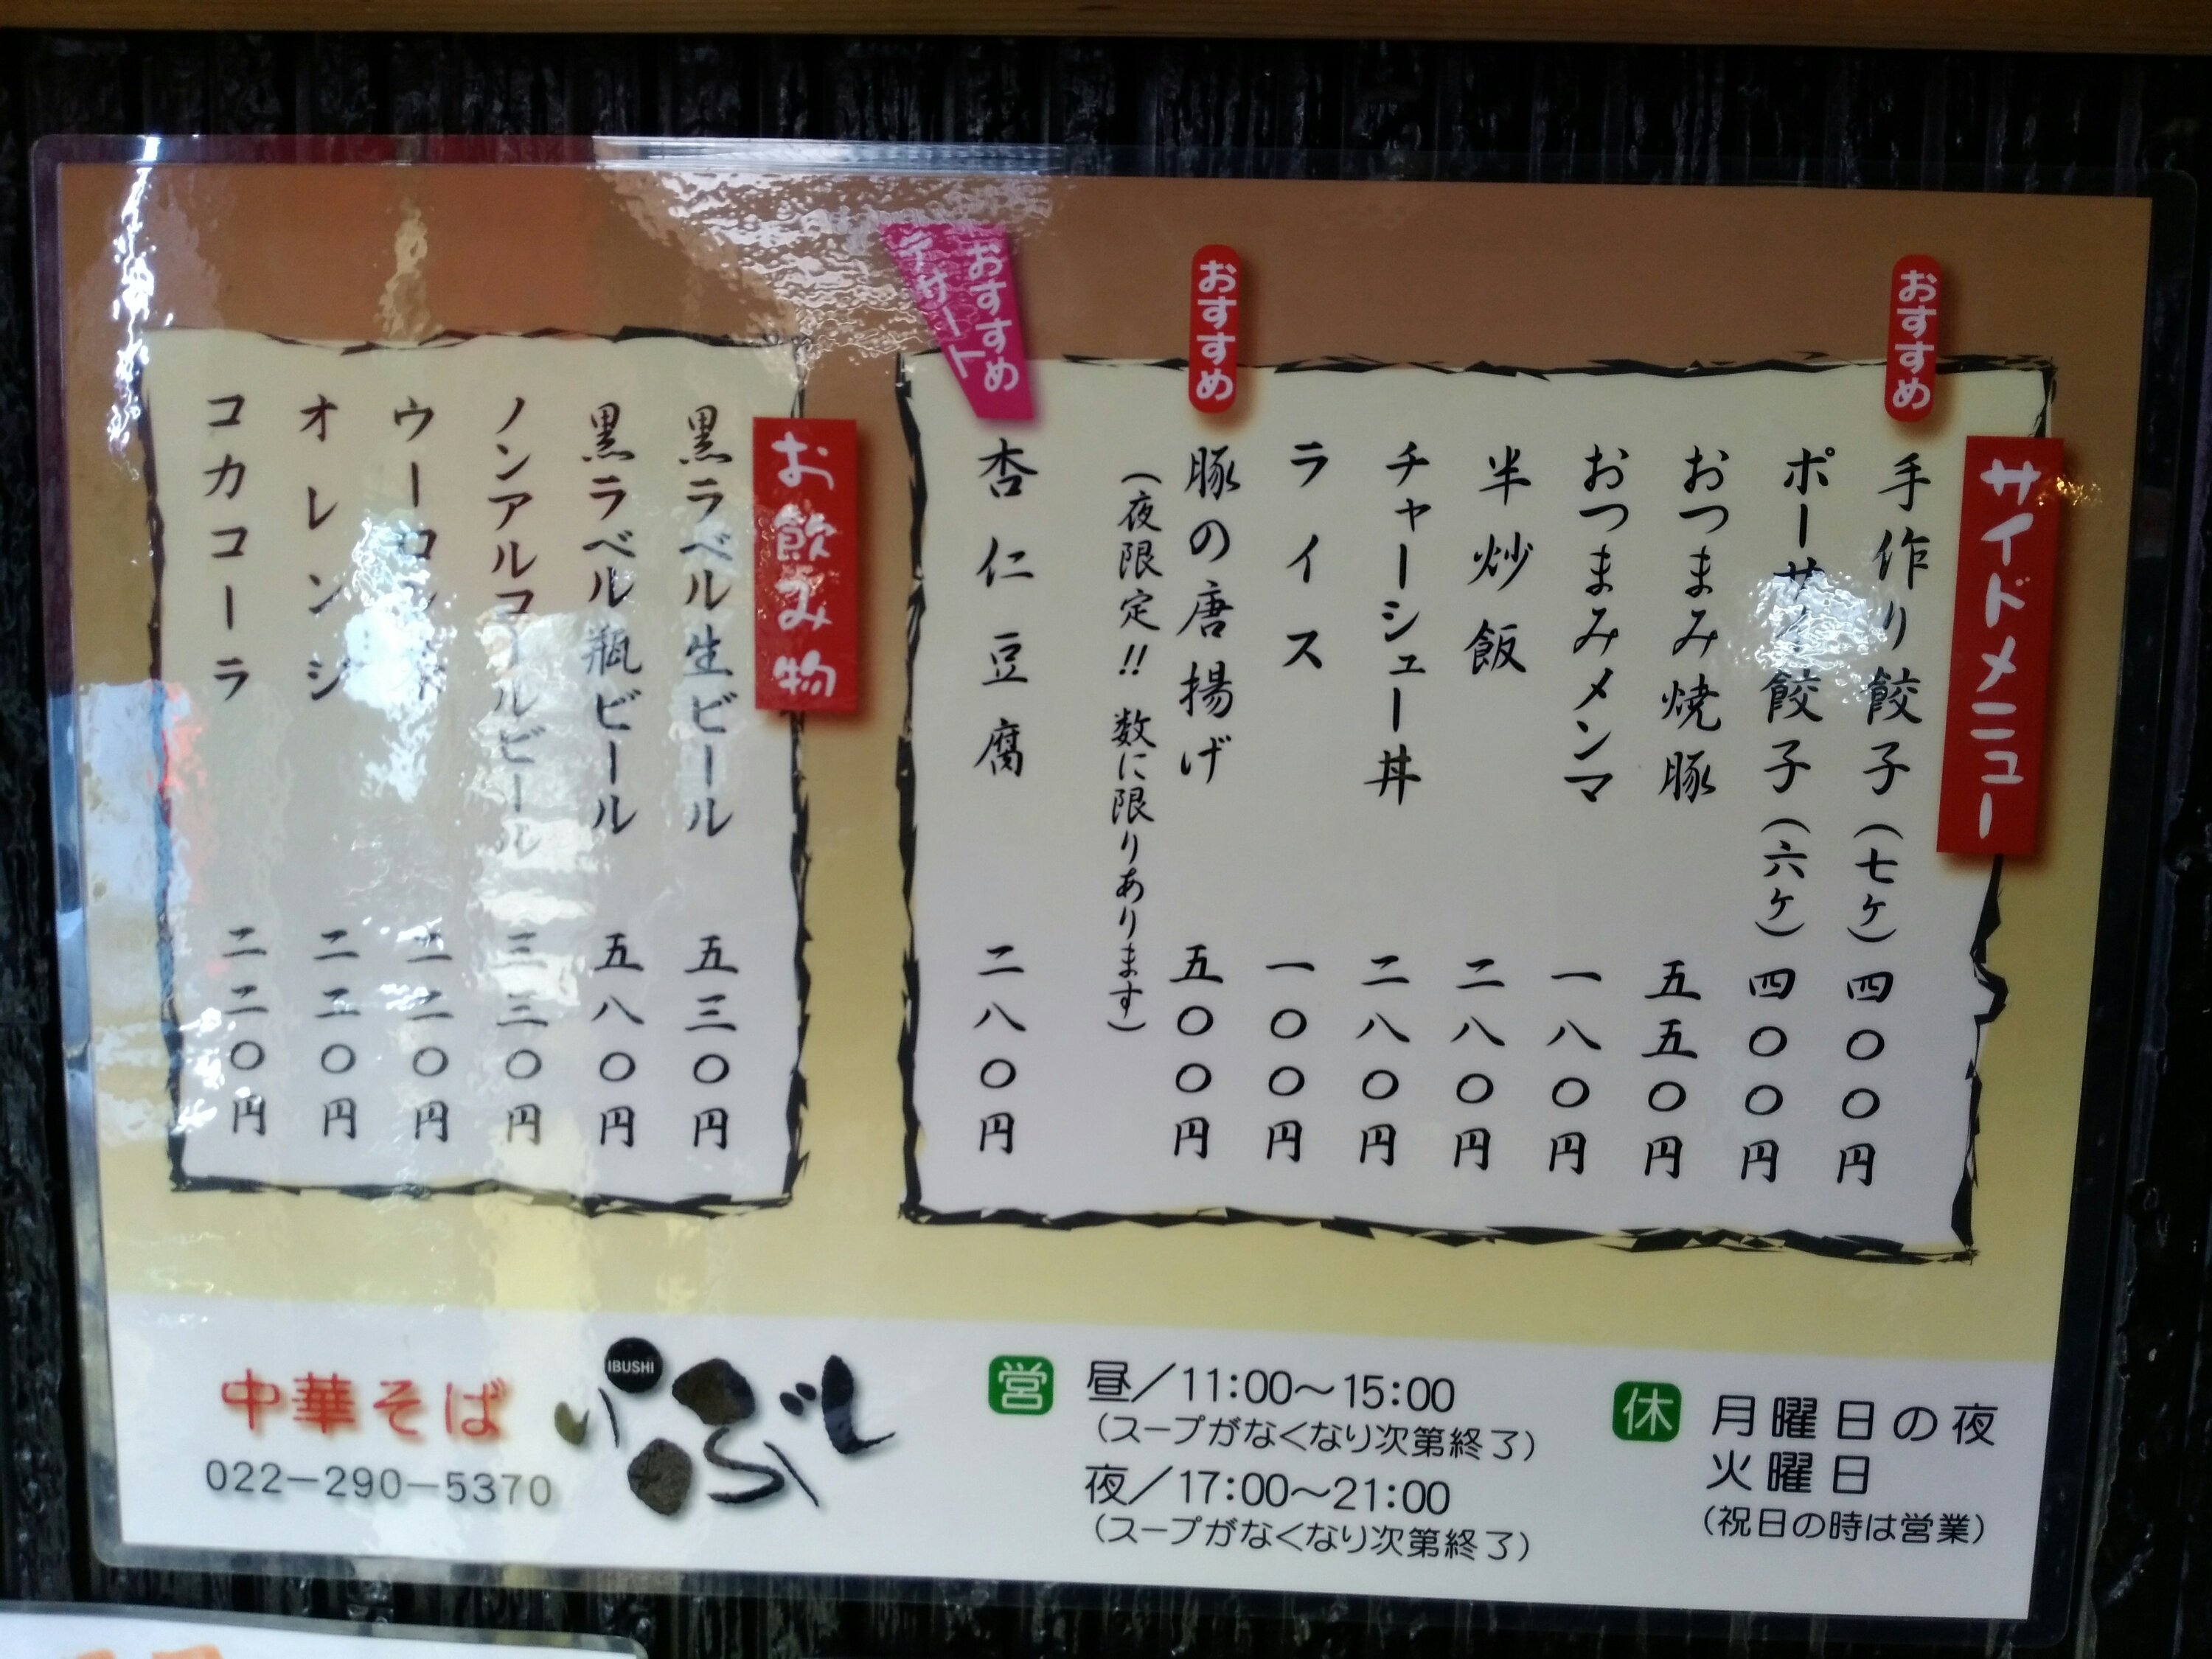 サイドメニュー
おすすめ
手作り餃子(七ケ)四〇〇円
餃子(六ケ)四〇〇円
おつまみ焼豚 五五〇円
おつまみメンマ 一八〇円
半炒飯 二八〇円
チャーシュー丼 二八〇円
ライス 一〇〇円
おすすめ
豚の唐揚げ 五〇〇円
(夜限定!! 数に限りあります)
おすすめ
デザート
杏仁豆腐 二八〇円
お飲み物
黒ラベル生ビール 五三〇円
黒ラベル瓶ビール 五八〇円
ノンアルコールビール 三三〇円
二二〇円
オレンジ 二二〇円
コカコーラ 二二〇円
中華そば
IBUSHI
いぶし
022-290-5370
営
昼/11:00〜15:00
(スープがなくなり次第終了)
夜/17:00〜21:00
(スープがなくなり次第終了)
休
月曜日の夜
火曜日
(祝日の時は営業)